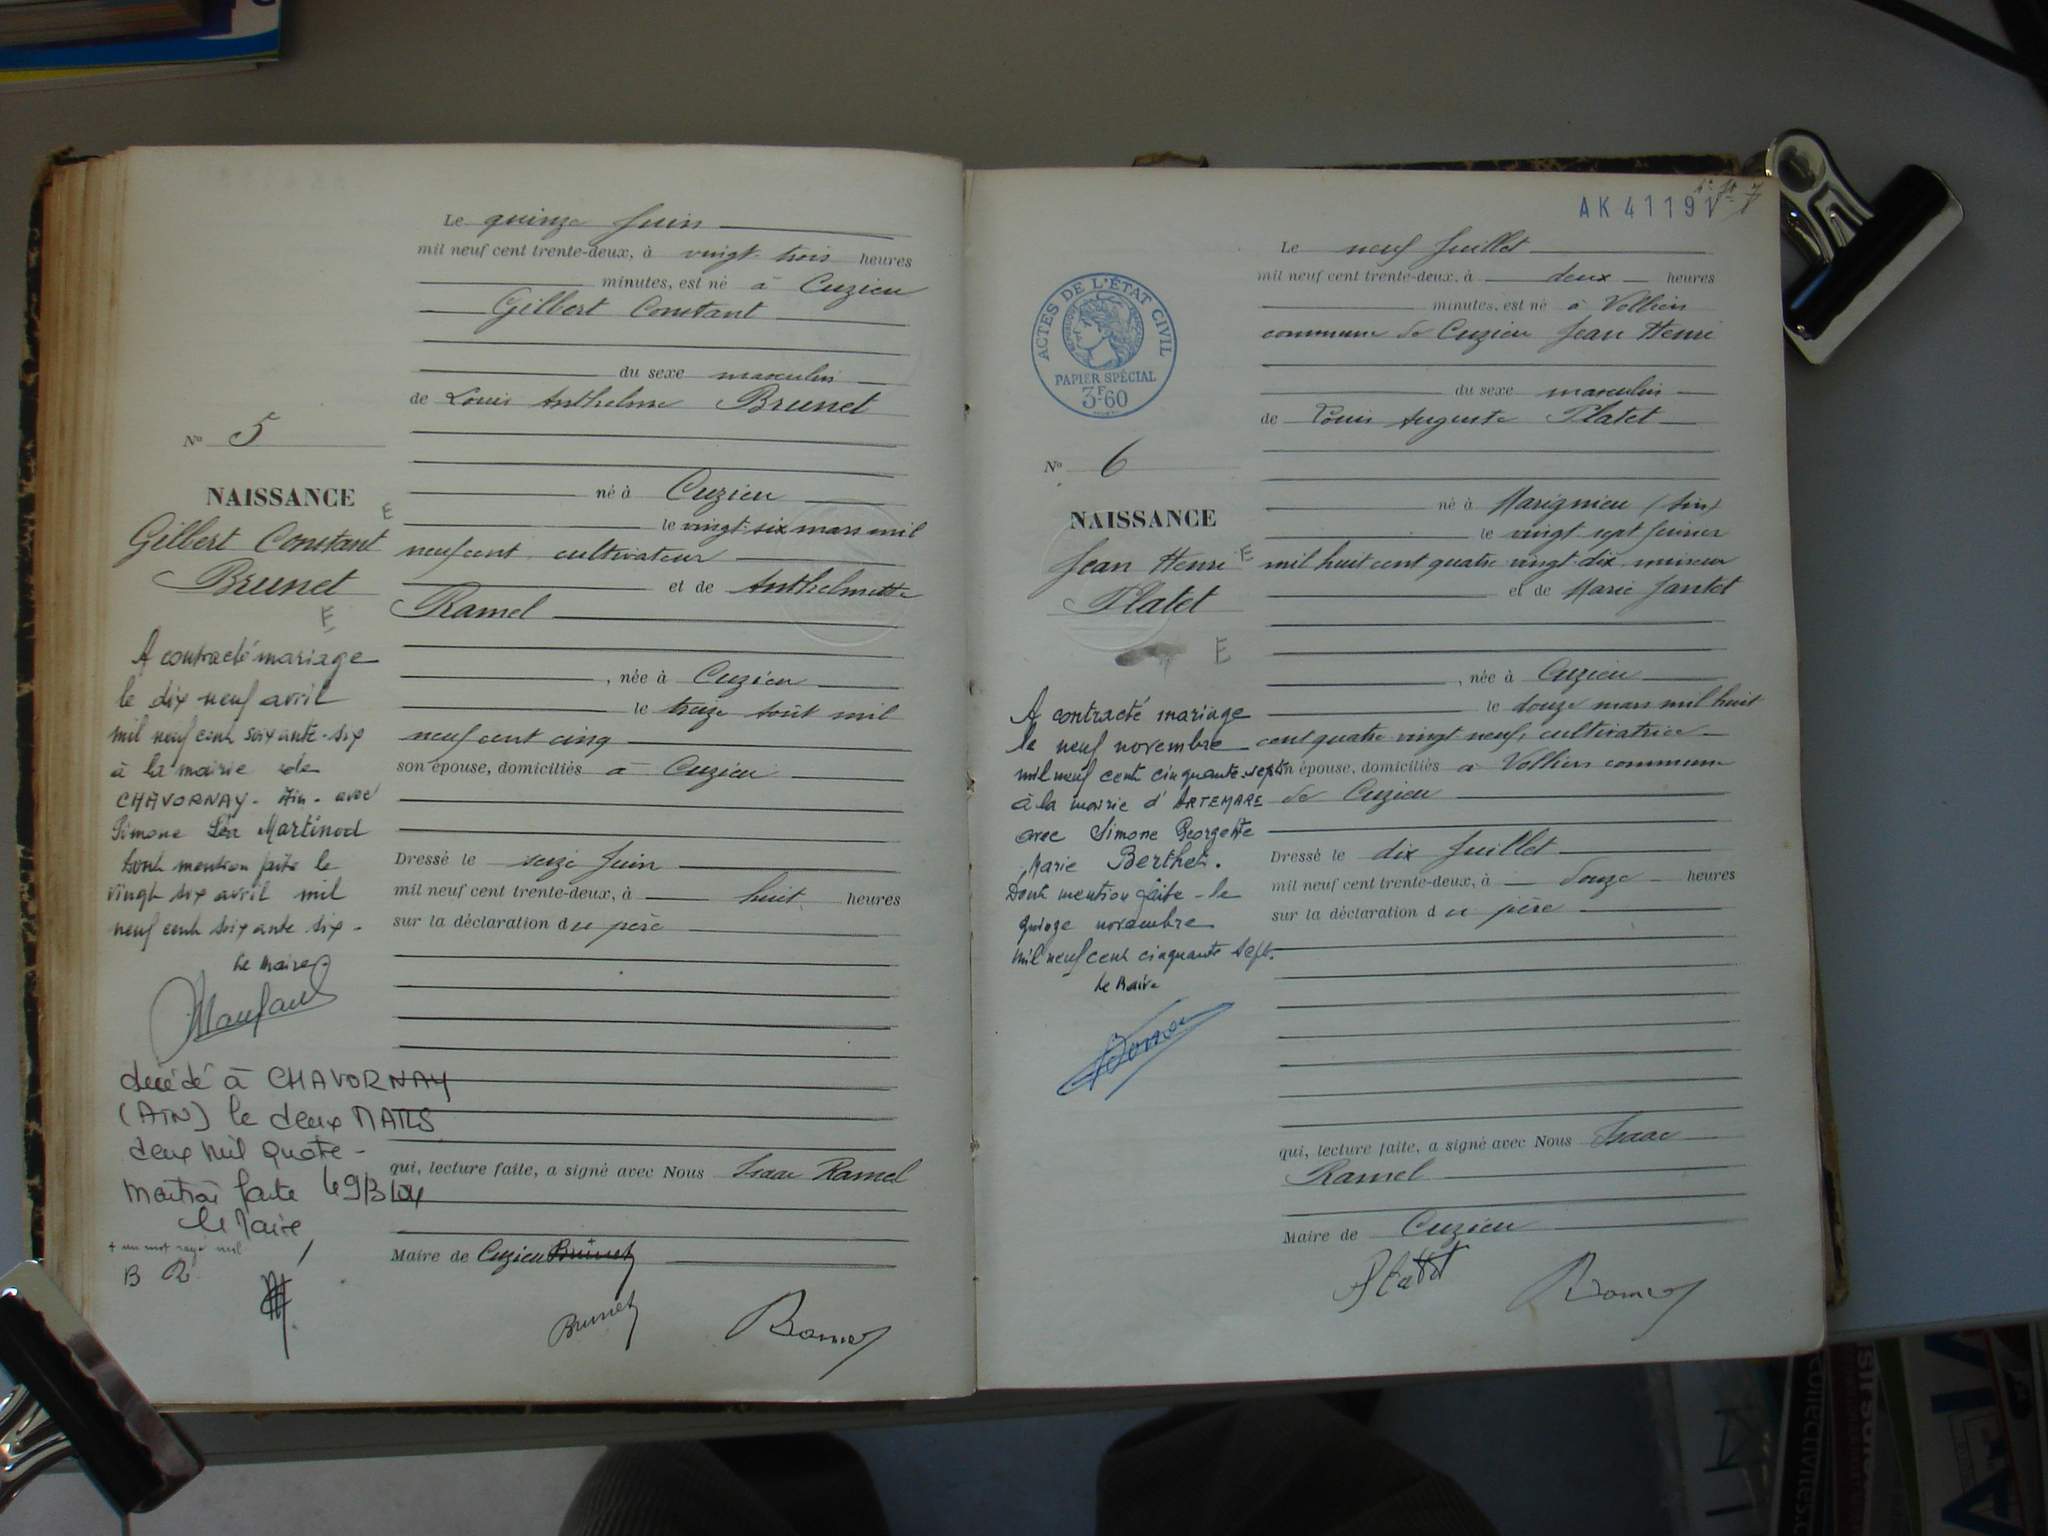 Le quinze Juin
mil neuf cent trente-deux, à vingt trois heures
minutes, est né à Cuzieu
Gilbert Constant
du sexe masculin
de Louis Anthelme Brunet
né à Cuzieu
le vingt-six mars mil
neuf cent cultivateur
et de Anthelmette
Ramel
, née à Cuzieu
le treize Août mil
neuf cent cinq
son épouse, domiciliés à Cuzieu
Dressé le seize Juin
mil neuf cent trente-deux, à huit heures
sur la déclaration du père
qui, lecture faite, a signé avec Nous Isaac Ramel
Maire de Cuzieu Brunet
Brunet Ramel
No 5
NAISSANCE
E
Gilbert Constant
Brunet
E
A contracté mariage
le dix-neuf avril
mil neuf cent soixante-six
à la mairie de
CHAVORNAY - Ain - avec
Simone Léa Martinod
Dont mention faite le
vingt six avril mil
neuf cent soixante six -
Le Maire
décédé à CHAVORNAY
(AIN) le deux MARS
deux mil quatre -
Mention faite le 9/3/04
Le Maire
+ un mot rayé nul
B R
AK 41191
7
Le neuf Juillet
mil neuf cent trente-deux, à deux heures
minutes, est né à Vollien
commune de Cuzieu Jean Henri
du sexe masculin
de Louis Auguste Platet
né à Marignieu (Ain)
le vingt-sept
mil huit cent quatre vingt-dix mineur
et de Marie Jantet
, née à Cuzieu
le douze mars mil huit
cent quatre-vingt-neuf, cultivatrice
son épouse, domiciliés à Vollien commune
de Cuzieu
Dressé le dix Juillet
mil neuf cent trente-deux, à douze heures
sur la déclaration du père
qui, lecture faite, a signé avec Nous Isaac
Ramel
Maire de Cuzieu
Platet Ramel
ACTES DE L'ÉTAT CIVIL
PAPIER SPÉCIAL
3F60
No 6
NAISSANCE
Jean Henri E
Platet
E
A contracté mariage
le neuf novembre
mil neuf cent cinquante-sept
à la mairie d'ARTEMARE
avec Simone Georgette
Marie Berthet.
Dont mention faite - le
quinze novembre
mil neuf cent cinquante sept.
Le Maire